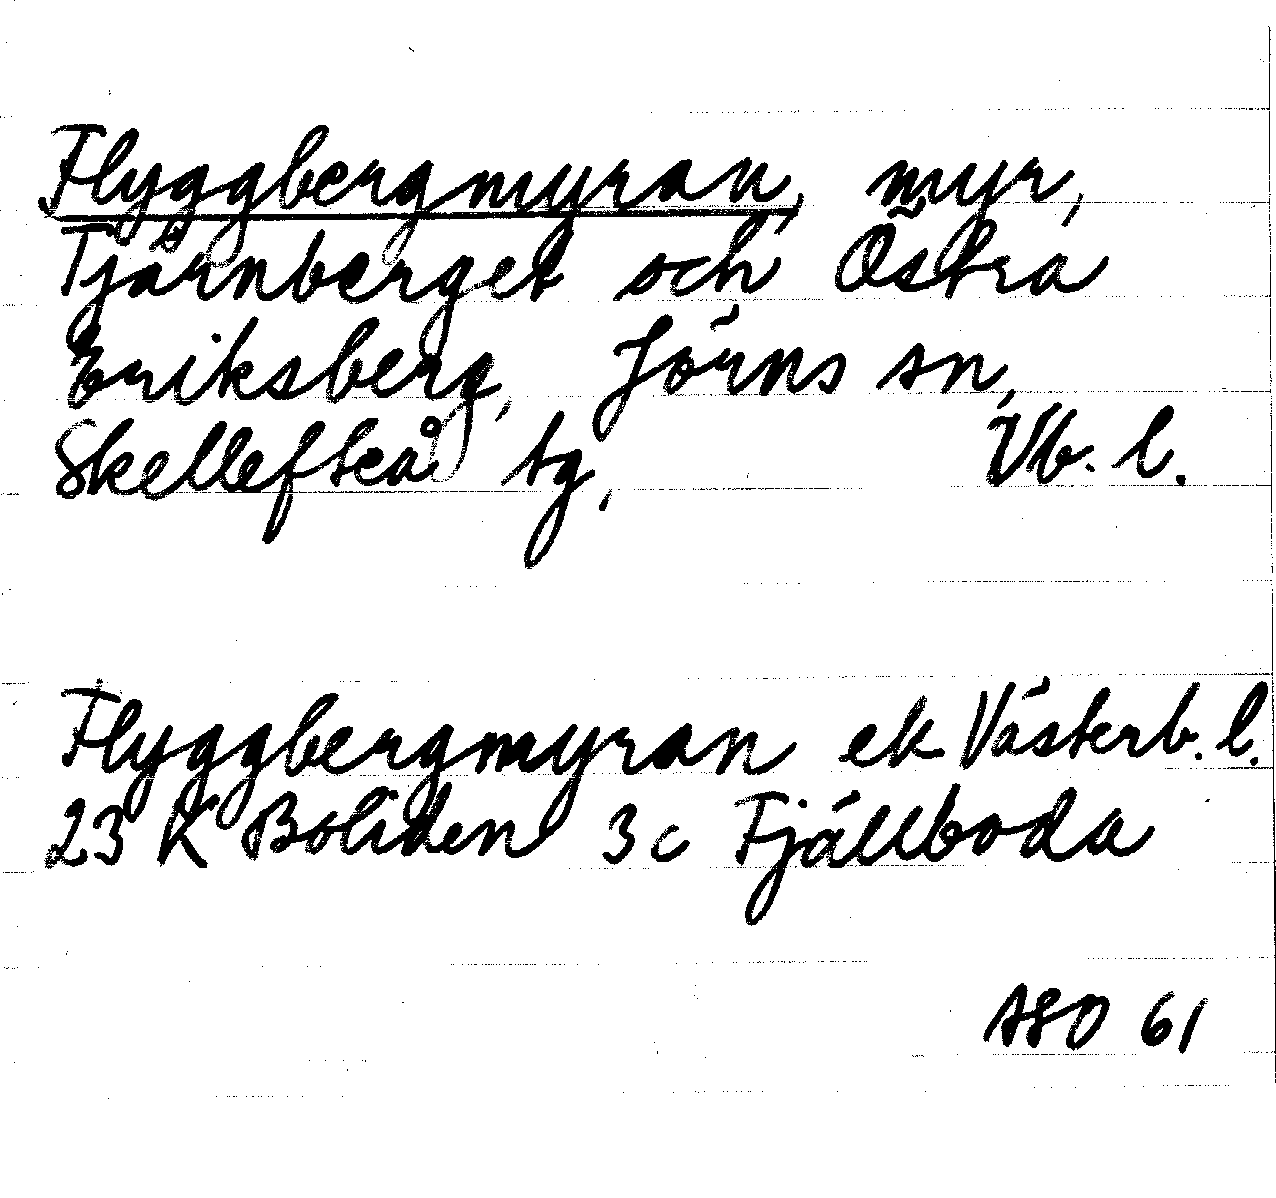 Flyggbergmyran, myr,
Tjärnberget och Östra
Eriksberg, Jörns sn,
Skellefteå tg, Vb. l.
Flyggbergmyran ek Västerb. l.
23 K Boliden 3 c Fjällboda
ASO 61